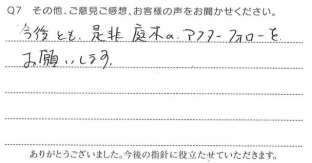 Q7 その他、ご意見ご感想、お客様の声をお聞かせください。
今後とも、是非 庭木のアフターフォローを
お願いします。
ありがとうございました。今後の指針に役立たせていただきます。